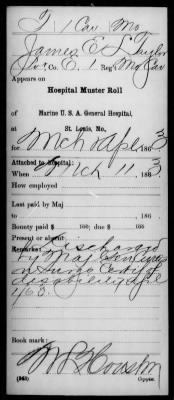 T | 1 Cav | Mo
James E. L. Taylor
Pvt Co. E, 1 Reg't Mo Cav
Appears on
Hospital Muster Roll
of
Marine U. S. A. General Hospital,
at St. Louis, Mo.,
for Mch & Apl, 1863
Attached to hospital:
When Mch 11, 1863
How employed
Last paid by Maj
to , 186
Bounty paid $ 100; due $ 100
Present or absent
Remarks: Discharged
by Maj Gen Curtis
on Surgs Certif of
disability Apl
4 63.
Book mark:
(343) Copyist.